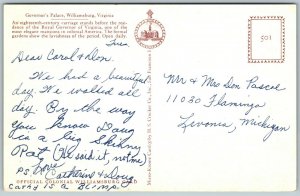 Governor's Palace, Williamsburg, Virginia
An eighteenth-century carriage stands before the res-
idence of the Royal Governor of Virginia, one of the
most elegant mansions in colonial America. The formal
gardens show the lavishness of the period. Open daily.
Tues
Dear Carol & Don,
We had a beautiful
day. We walked all
day. By the way
you know Doug
is a big Skinny
Rat, (He said it, not me)
Love
Catherine & Doug
PS
OFFICIAL COLONIAL WILLIAMSBURG CARD
Card is a Blimp.
501
Mr + Mrs Don Pascoe
11030 Flamingo
Livonia, Michigan